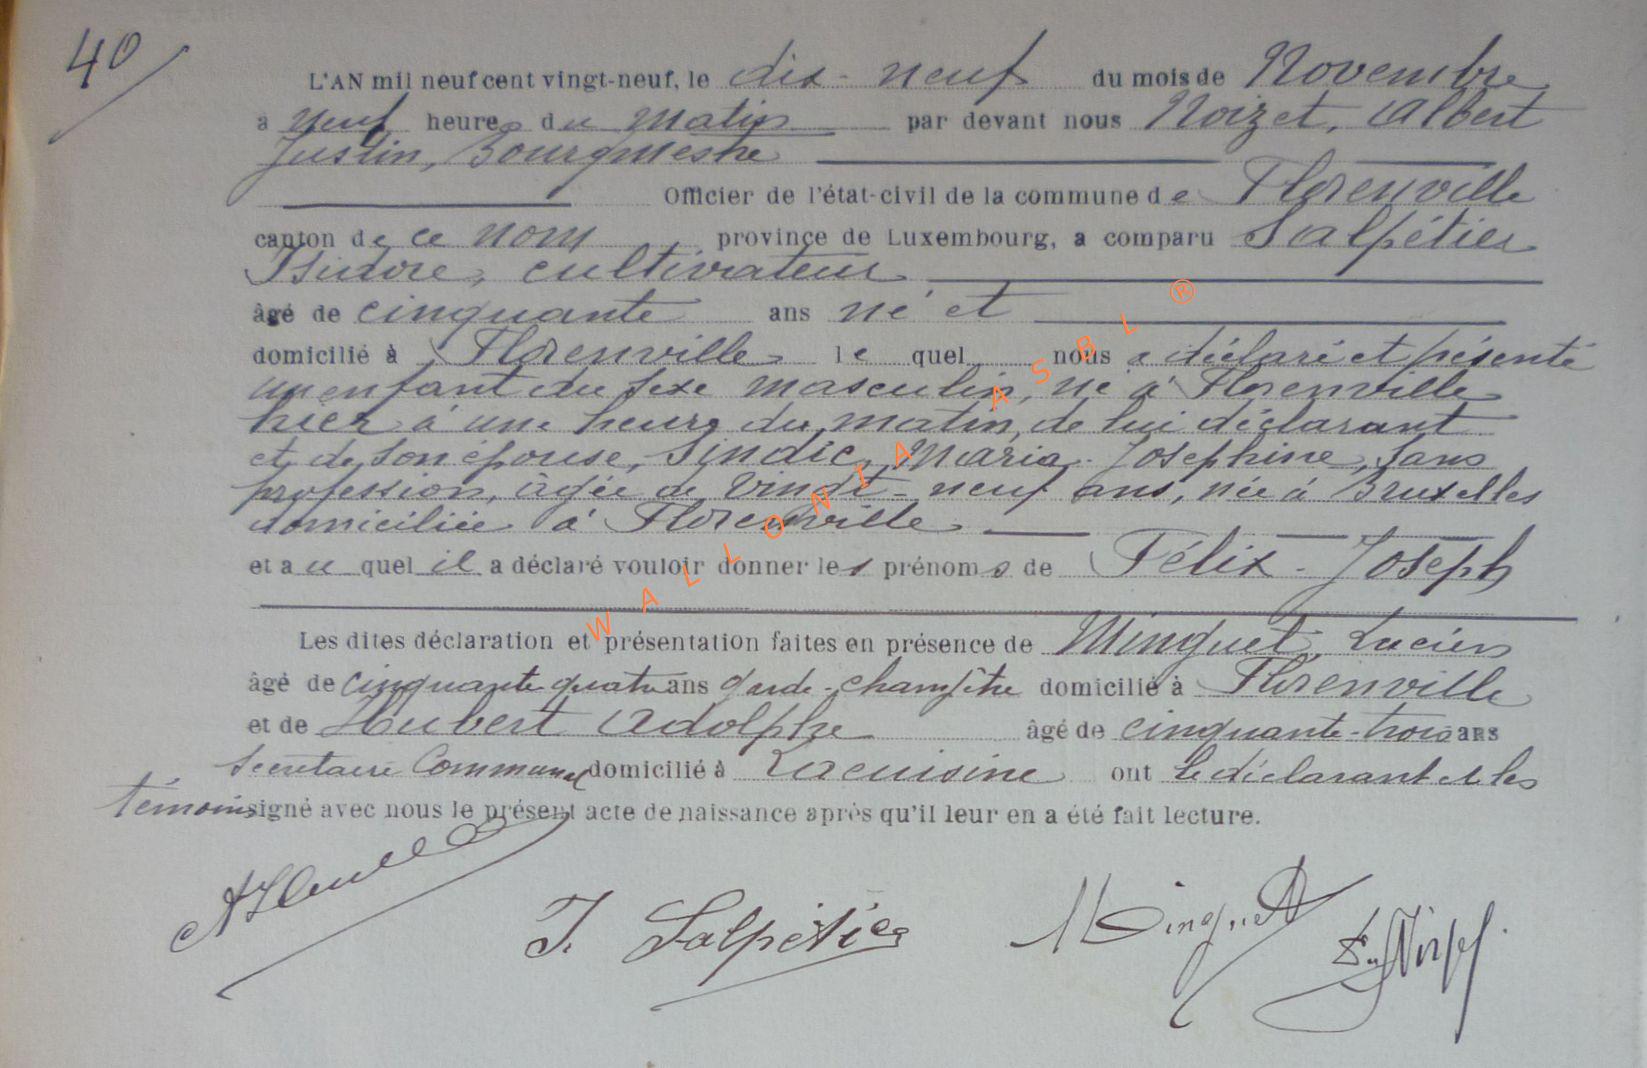 40
L'AN mil neuf cent vingt-neuf, le dix-neuf du mois de Novembre
a neuf heures du matin par devant nous Noizet, Albert
Justin, Bourgmestre
Officier de l'état-civil de la commune de Florenville
canton de ce nom province de Luxembourg, a comparu Salpétier
Isidore, cultivateur
âgé de cinquante ans né et
domicilié à Florenville lequel nous a déclaré et présenté
un enfant du sexe masculin, né à Florenville
hier à une heure du matin, de lui déclarant
et de son épouse, Sindic, Maria-Joséphine, sans
profession, âgée de vingt-neuf ans, née à Bruxelles
domiciliée à Florenville
et auquel il a déclaré vouloir donner les prénoms de Félix-Joseph
Les dites déclaration et présentation faites en présence de Minguet, Lucien
âgé de cinquante quatre ans garde-champêtre domicilié à Florenville
et de Hubert Adolphe âgé de cinquante-trois ans
Secrétaire Communal domicilié à Lacuisine ont le déclarant et les
témoins signé avec nous le présent acte de naissance après qu'il leur en a été fait lecture.
I. Salpétier Minguet
WALLONIA ASBL ®